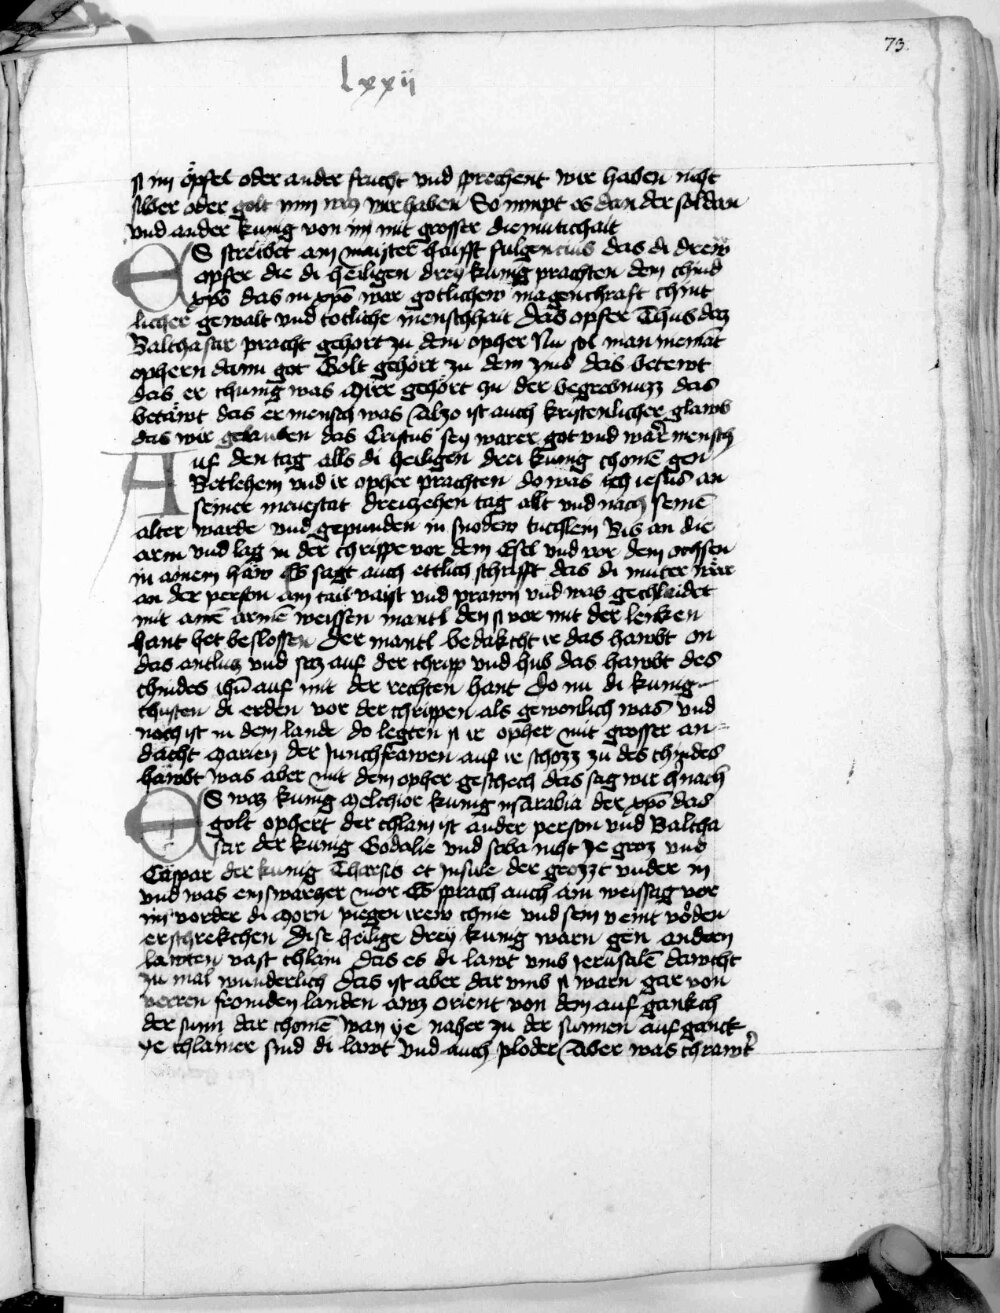 73.
lxxij
si im öpfel oder ander frucht vnd sprechent wir haben nicht
silber oder golt nim was wir haben So nimpt es dan der soldan
vnd ander kunig von im mit grosser diemuticchait
ES streibet am maister haisst fulgencius das di drew
opfer die di heiligen drey kunig prachten dem chind
xpo das in xpo war gotlichew magenchraft chint
licher gewalt vnd totliche menschhait Das opfer Thus daz
Balthasar pracht gehort zu dem opher Nu sol man niemāt
ophern dann got Golt gehört zu dem zins das betewt
das er chunig was Mirr gehört zu der begrebnuzz das
betäwt das er mensch was Alzo ist auch kristenlicher glawb
das wir gelauben das Cristus sey warer got vnd war mensch
Auf den tag alls di heiligen drei kunig chomē gen
Betlehem vnd ir opher prachten do was ich iesus an
seiner menestat dreizehen tag allt vnd nach seinē
alter warde vnd gepunden in snodew tuchlem Bis an die
arm vnd lag in der chrippe vor dem Esel vnd vor dem ochsen
in ainem häw Es sagt auch ettlich schrifft das di muter wär
an der person am tail vaist vnd prawn vnd was gechlaidet
mit ainē armē weissen mantl den si vor mit der lenken
hant het beslossen Der mantl bedakcht ir das hawbt on
das antlutz vnd saz auf der chripp vnd hub das hawbt des
chindes ihū auf mit der rechten hant Do nu di kunig
chusten di erden vor der chrippen als gewonlich was vnd
noch ist in dem lande do legten si ir opher mit grosser an=
dacht Marien der Junchfrawen auf ir schozz zu des chindes
häwbt was aber mit dem opher geschech das sag wir hnach
ES waz kunig Melchior kunig in Arabia der xpo das
golt ophert der chlain ist ander person vnd Baltha
sar der kunig Godolie vnd saba nicht ze groz vnd
Caspar der kunig Tharsis et Insule der grozzt vnder in
vnd was ein swarzer mor Es sprach auch ain weissag vor
im vorder di Morn piegen irew chnie vnd sein veint
erschrekchen Dise heilige drey kunig warn gen andern
lawten vast chlain das es di lawt vmb Jerusalē dawcht
zu mal wunderlich Das ist aber dar vmb si warn gar von
verren fromden landen awz Orient von dem auf gankch
der sunn dar chomē wan ye naher zu der sunnen auf ganck
ye chlainer sind di lawt Vnd auch ploder Aber was chrawt